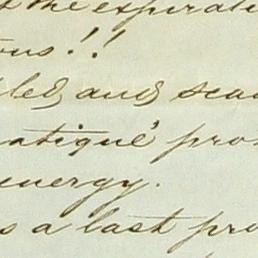 t the expirati
ous!!
led, and sca
atigué pros
energy.
s a last pro